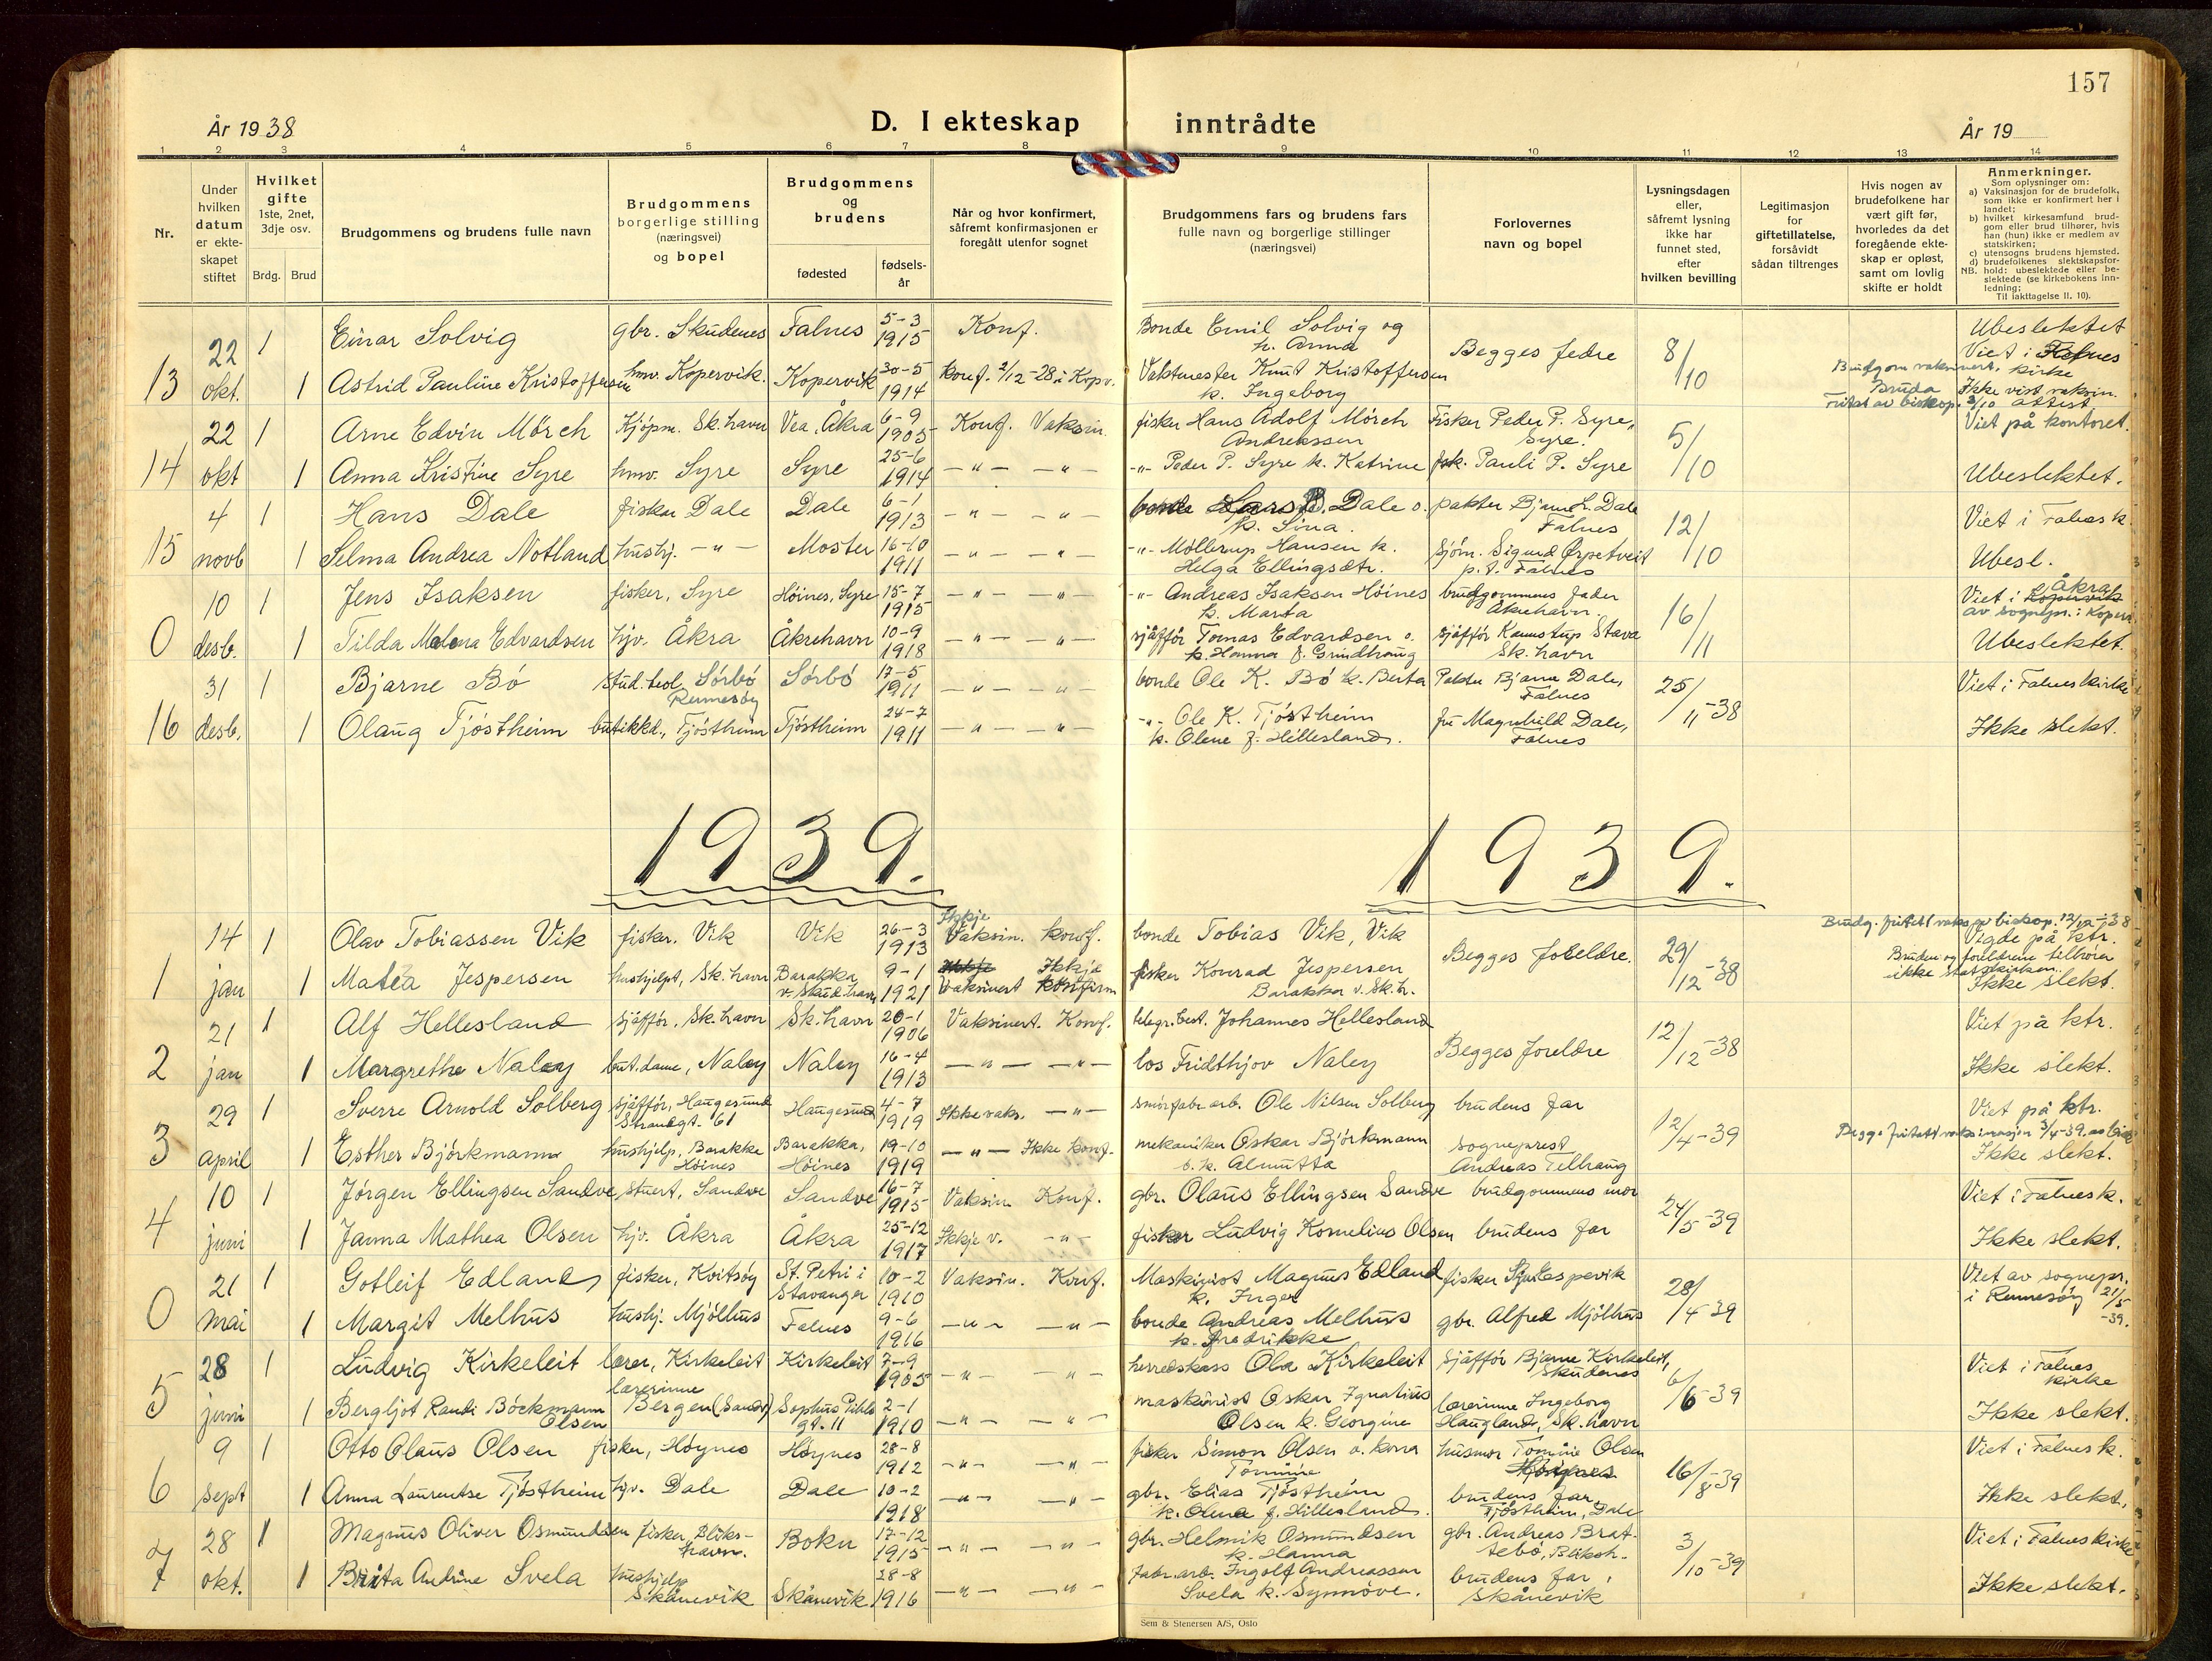 157
År 1938
D. I ekteskap inntrådte
År 19
1 2 3 4 5 6 7 8 9 10 11 12 13 14
Nr.
Under hvilken datum er ekte-skapet stiftet
Hvilket gifte 1ste, 2net, 3dje osv.
Brdg. Brud
Brudgommens og brudens fulle navn
Brudgommens borgerlige stilling (næringsvei) og bopel
Brudgommens og brudens
fødested
fødsels-år
Når og hvor konfirmert, såfremt konfirmasjonen er foregått utenfor sognet
Brudgommens fars og brudens fars fulle navn og borgerlige stillinger (næringsvei)
Forlovernes navn og bopel
Lysningsdagen eller, såfremt lysning ikke har funnet sted, efter hvilken bevilling
Legitimasjon for giftetillatelse, forsåvidt sådan tiltrenges
Hvis nogen av brudefolkene har vært gift før, hvorledes da det foregående ekte-skap er opløst, samt om lovlig skifte er holdt
Anmerkninger.
Som oplysninger om:
a) Vaksinasjon for de brudefolk, som ikke er konfirmert her i landet;
b) hvilket kirkesamfund brud-gom eller brud tilhører, hvis han (hun) ikke er medlem av statskirken;
c) utensogns brudens hjemsted.
d) brudefolkenes slektskapsfor-
NB. hold: ubeslektede eller be-slektede (se kirkebokens inn-ledning;
Til iakttagelse II. 10).
22 1 Einar Solvig gbr. Skudenes Falnes 5-3 1915 Konf. Bonde Emil Solvig og k. Anna Begges fedre 8/10 Ubeslektet Viet i Falnes kirke
13 okt. 1 Astrid Pauline Kristoffersen hmv. Kopervik. Kopervik 30-5 1914 Konf. 2/12-28 i Kopv. Vaktmester Knut Kristoffersen k. Ingeborg Brudgom vaksinert. Bruda Ikke vist vaksin. attest Fritat av biskop. 3/10
22 1 Arne Edvin Mörch Kjöpm. Sk.havn Vea, Åkra 6-9 1905 Konf. Vaksin. fisker Hans Adolf Mörch Andreassen Fisker Peder P. Syre, Syre. 5/10 Viet på kontoret.
14 okt 1 Anna Kristine Syre hmv. Syre Syre 25-6 1914 -"- -"- -"- Peder P. Syre k. Katrine fsk. Pauli P. Syre Ubeslektet.
4 1 Hans Dale fisker Dale Dale 6-1 1913 -"- -"- bonde Lars B. Dale o. k. Sina. pakter Bjarne L. Dale Falnes 12/10 Viet i Falnes k.
15 novb 1 Selma Andrea Notland hushj. -"- Moster 16-10 1911 -"- -"- -"- Möllerup Hansen k. Helga Ellingsdtr. sjöm. Sigurd Ørpetveit p.t. Falnes Ubesl.
10 1 Jens Isaksen fisker, Syre Höines, Syre 15-7 1915 -"- -"- -"- Andreas Isaksen Höines k. Marta brudgommens fader Åkrehavn. 16/11 Viet i Kopervik Åkra av sognepr. i Koperv.
0 desb. 1 Tilda Malena Edvardsen hjv. Åkra Åkrehavn 10-9 1918 -"- -"- sjåfför Tomas Edvardsen o. k. Hanna f. Grindhaug sjåffór Stava Sk.havn Ubeslektet.
31 1 Bjarne Bö stud.teol. Sörbö Rennesöy Sörbö 17-5 1911 -"- -"- bonde Ole K. Bö k. Berta Pakter Bjarne Dale, Falnes 25/11-38 Viet i Falnes kirke
16 desb. 1 Olaug Tjöstheim butikkd., Tjöstheim Tjöstheim 24-7 1911 -"- -"- -"- Ole K. Tjöstheim k. Olene f. Hillesland. fru Magnhild Dale, Falnes Ikke slekt.
1939. 1939.
14 1 Olav Tobiassen Vik fisker. Vik Vik 26-3 1913 Ikkje Vaksin. konf. bonde Tobias Vik, Vik Begges foreldre. 29/12-38 Brudg. fritatt vaks av biskop. 12/12-38 Vigde på ktr.
1 jan 1 Matea Jespersen hushjelp, Sk.havn Barakka v. Skud.havn 9-1 1921 Ikkje Vaksinert Ikkje konfirm fisker Konrad Jespersen Barakka v. Sk.h. Bruden og foreldrene tilhörer ikke statskirken. Ikke slekt.
21 1 Alf Hellesland sjåffór, Sk.havn Sk.havn 20-1 1906 Vaksinert. Konf. telegr.best. Johannes Hellesland Begges foreldre 12/12-38 Viet på ktr.
2 jan 1 Margrethe Naley but.dame, Naley Naley 16-4 1913 -"- -"- los Fridthjov Naley Ikke slekt.
29 1 Sverre Arnold Solberg sjåffór, Haugesund Strandgt. 61 Haugesund 4-7 1919 Ikke vaks. -"- smörfabr.arb. Ole Nilsen Solberg brudens far 12/4-39 Viet på ktr.
3 april 1 Esther Björkmann hushjelp, Barakke Höines Barakka, Höines 19-10 1919 -"- Ikke konf. mekaniker Oskar Björkmann o. k. Almutta sogneprest Andreas Tellhaug Begge fritatt vaksinasjon 3/4-39. av bisk Ikke slekt.
10 1 Jørgen Ellingsen Sandve stuert, Sandve Sandve 16-7 1915 Vaksin Konf. gbr. Olaus Ellingsen Sandve brudgommens mor 24/5-39 Viet i Falnes k.
4 juni 1 Janna Mathea Olsen hjv. Åkra Åkra 25-12 1917 Ikkje v. -"- fisker Ludvig Kornelius Olsen brudens far Ikke slekt.
21 1 Gotleif Edland fisker, Kvitsöy St. Petri i Stavanger 10-2 1910 Vaksin. Konf. Maskinist Magnus Edland k. Inger fisker Espevik 28/4-39 Viet av sognepr. i Rennesöy 21/5-39.
0 Mai 1 Margit Melhus hushj. Mjölhus Falnes 9-6 1916 -"- -"- bonde Andreas Melhus k. Fredrikke gbr. Alfred Mjölhus
28 1 Ludvig Kirkeleit lærer, Kirkeleit Kirkeleit 7-9 1905 -"- -"- herredskass Ola Kirkeleit Sjåffór Bjarne Kirkeleit, Skudenes 6/6-39 Viet i Falnes kirke
5 juni 1 Bergljot Randi Böckmann Olsen lærerinne Bergen (Sandv) Sophus Pihls gt. 11 2-1 1910 -"- -"- maskinist Oskar Ignatius Olsen k. Georgine lærerinne Ingeborg Haugland, Sk.havn Ikke slekt.
9 1 Otto Olaus Olsen fisker, Höynes Höynes 28-8 1912 -"- -"- fisker Simon Olsen o. kona Tomine husmor Tomine Olsen Höynes 16/8-39 Viet i Falnes k.
6 sept 1 Anna Laurentse Tjöstheim hjv. Dale Dale 10-2 1918 -"- -"- gbr. Elias Tjöstheim k. Olena f. Hillesland. brudens far, Tjöstheim, Dale Ikke slekt.
28 1 Magnus Oliver Osmundsen fisker, Bliks-havn. Bokn 17-12 1915 -"- -"- gbr. Helmik Osmundsen k. Hanna gbr. Andreas Brat-tebö, Bliksh. 3/10-39 Viet i Falnes kirke
7 okt. 1 Brita Andrine Svela hushjelp Skånevik Skånevik 28-8 1916 -"- -"- Fabr.arb. Ingolf Andreassen Svela k. Synnöve. brudens far, Skånevik Ikke slekt.
Sem & Stenersen A/S, Oslo